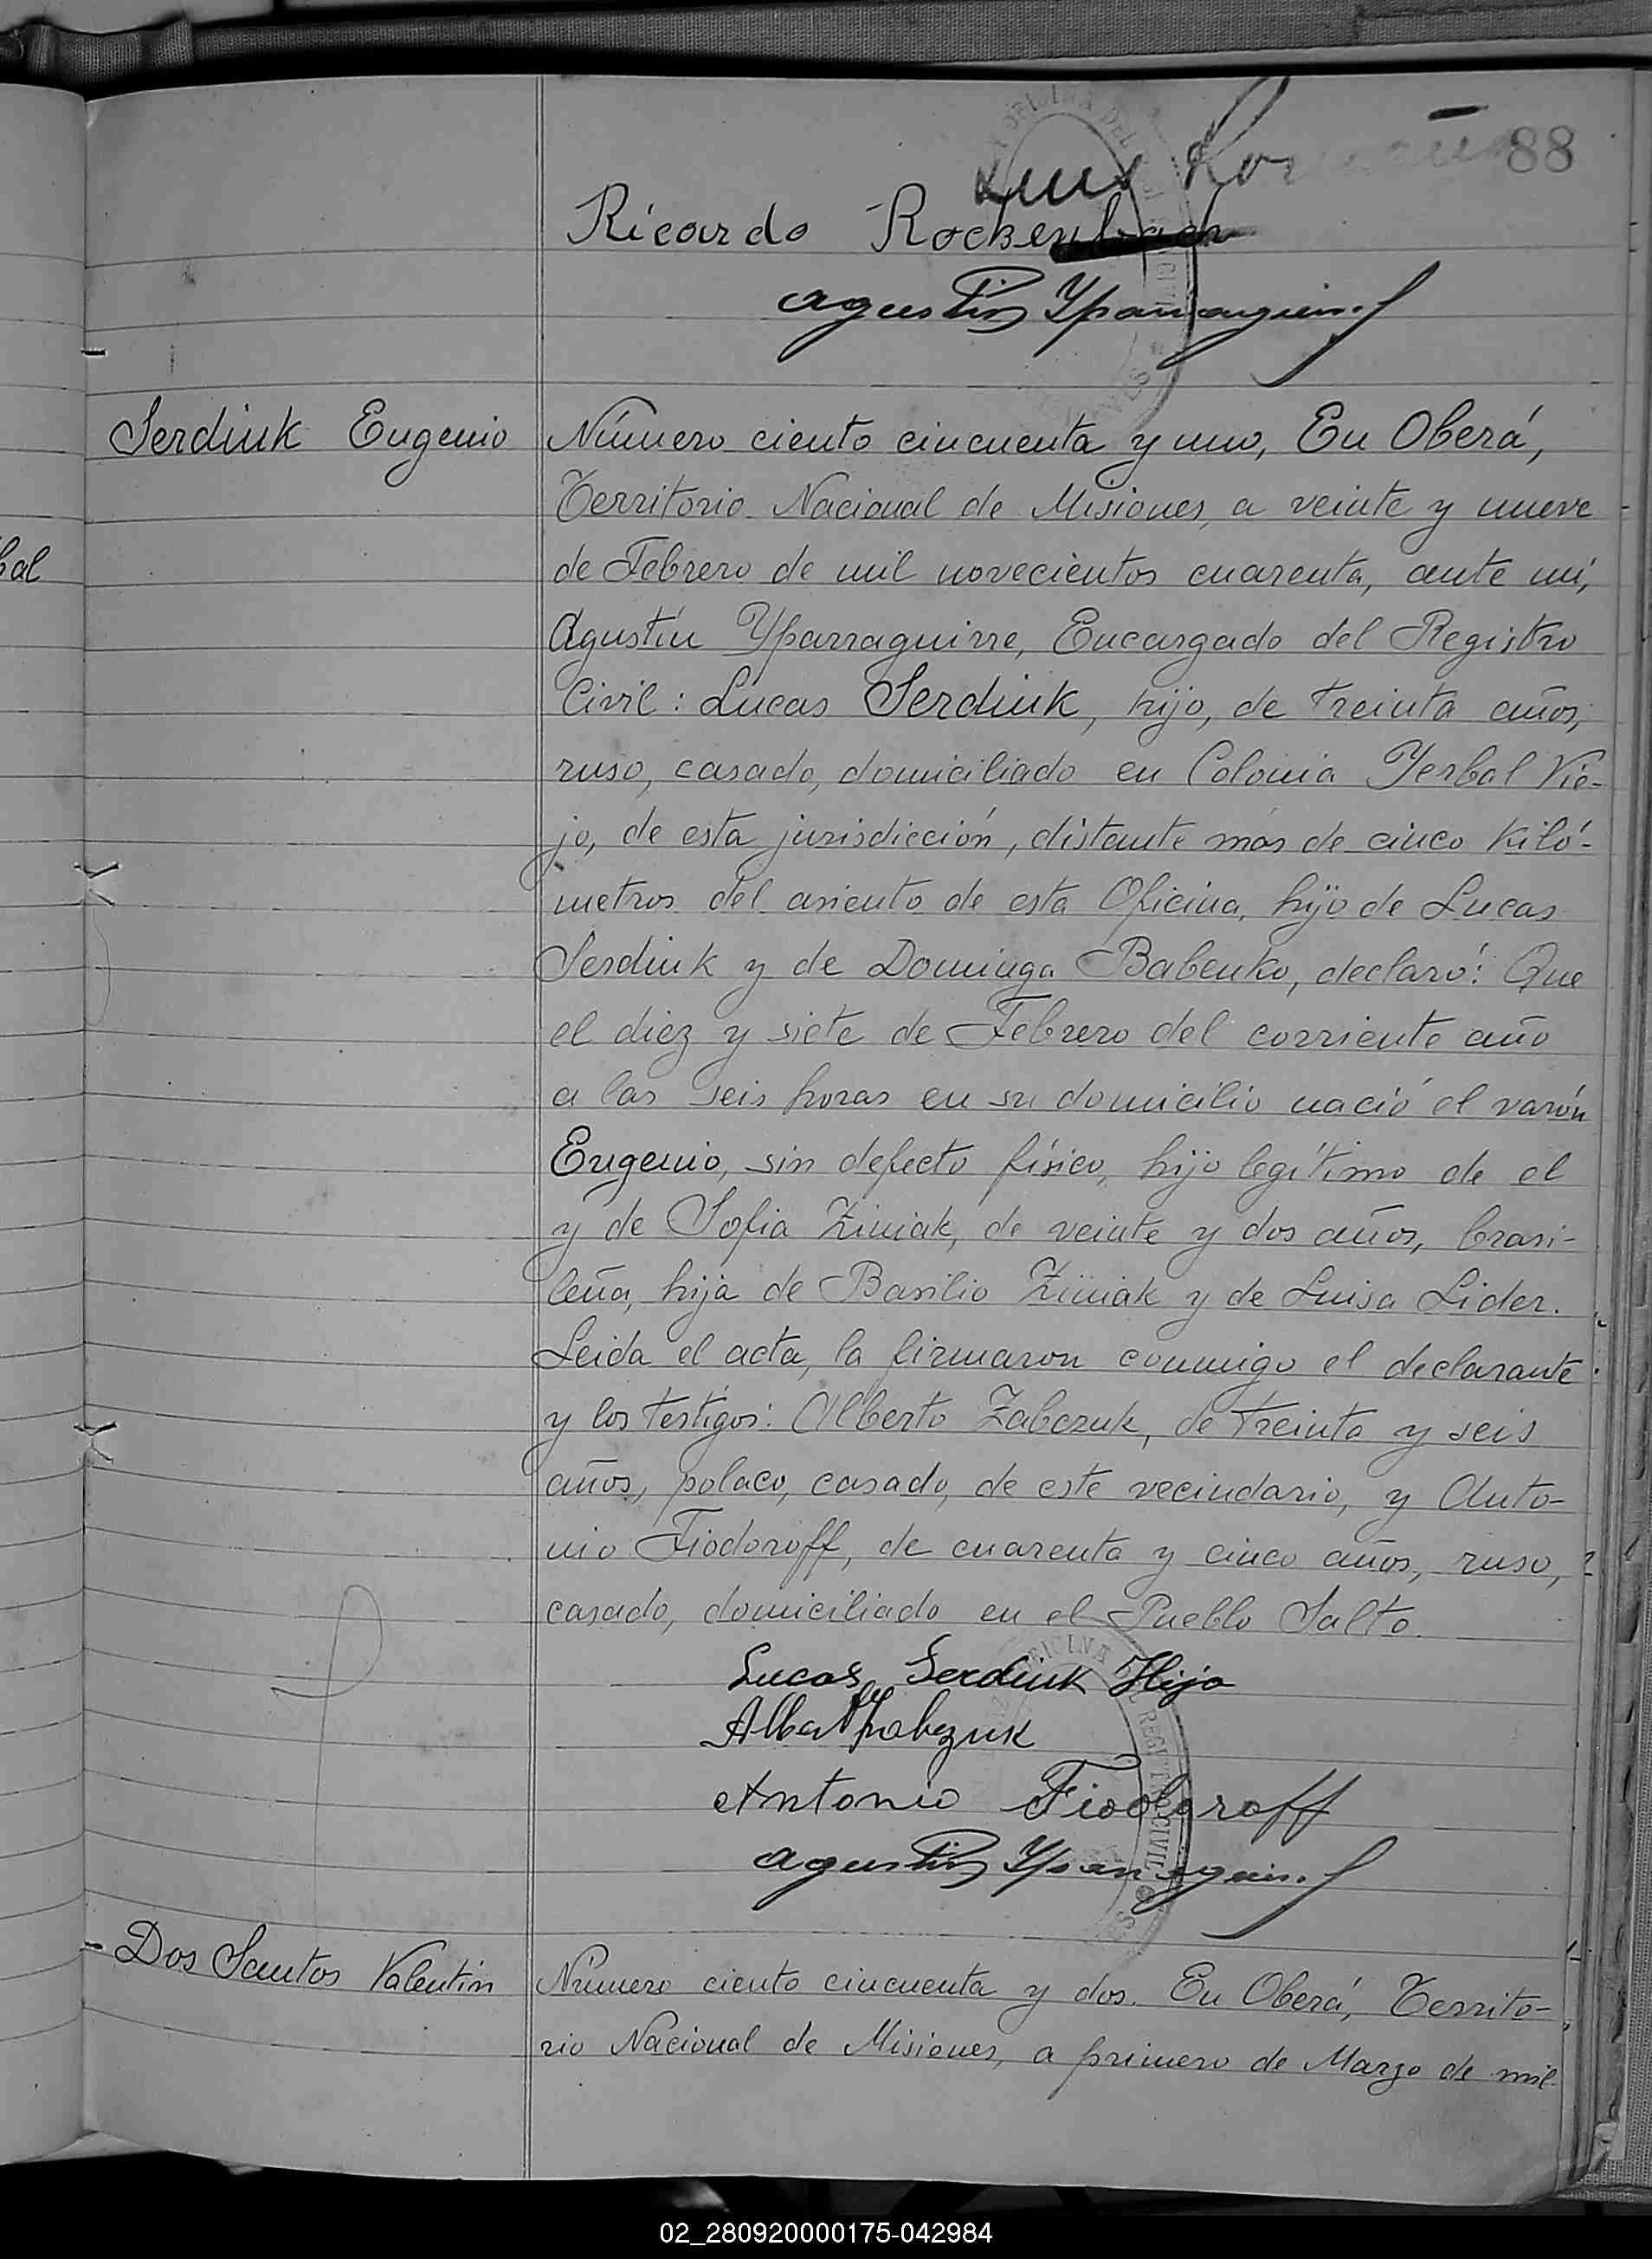 88
Luis
Ricardo Rockenbach
Agustín Yparraguirre
Serdiuk Eugenio
Número ciento cincuenta y uno, En Oberá,
Territorio Nacional de Misiones, a veinte y nueve
de Febrero de mil novecientos cuarenta, ante mí,
Agustín Yparraguirre, Encargado del Registro
Civil: Lucas Serdiuk, hijo, de treinta años,
ruso, casado, domiciliado en Colonia Yerbal Vie-
jo, de esta jurisdicción, distante más de cinco kiló-
metros del asiento de esta Oficina, hijo de Lucas
Serdiuk y de Dominga Babenko, declaró: Que
el diez y siete de Febrero del corriente año
a las seis horas en su domicilio nació el varón
Eugenio, sin defecto físico, hijo legítimo de el
y de Sofia Ziniak, de veinte y dos años, brasi-
leña, hija de Basilio Ziniak y de Luisa Lider.
Leida el acta, la firmaron conmigo el declarante
y los testigos: Alberto Zabczuk, de treinta y seis
años, polaco, casado, de este vecindario, y Anto-
nio Fiodoroff, de cuarenta y cinco años, ruso,
casado, domiciliado en el Pueblo Salto.
Lucas Serdiuk Hijo
Albert Zabczuk
Antonio Fiodoroff
Agustín Yparraguirre
Dos Santos Valentín
Número ciento cincuenta y dos. En Oberá, Territo-
rio Nacional de Misiones, a primero de Marzo de mil
02_280920000175-042984